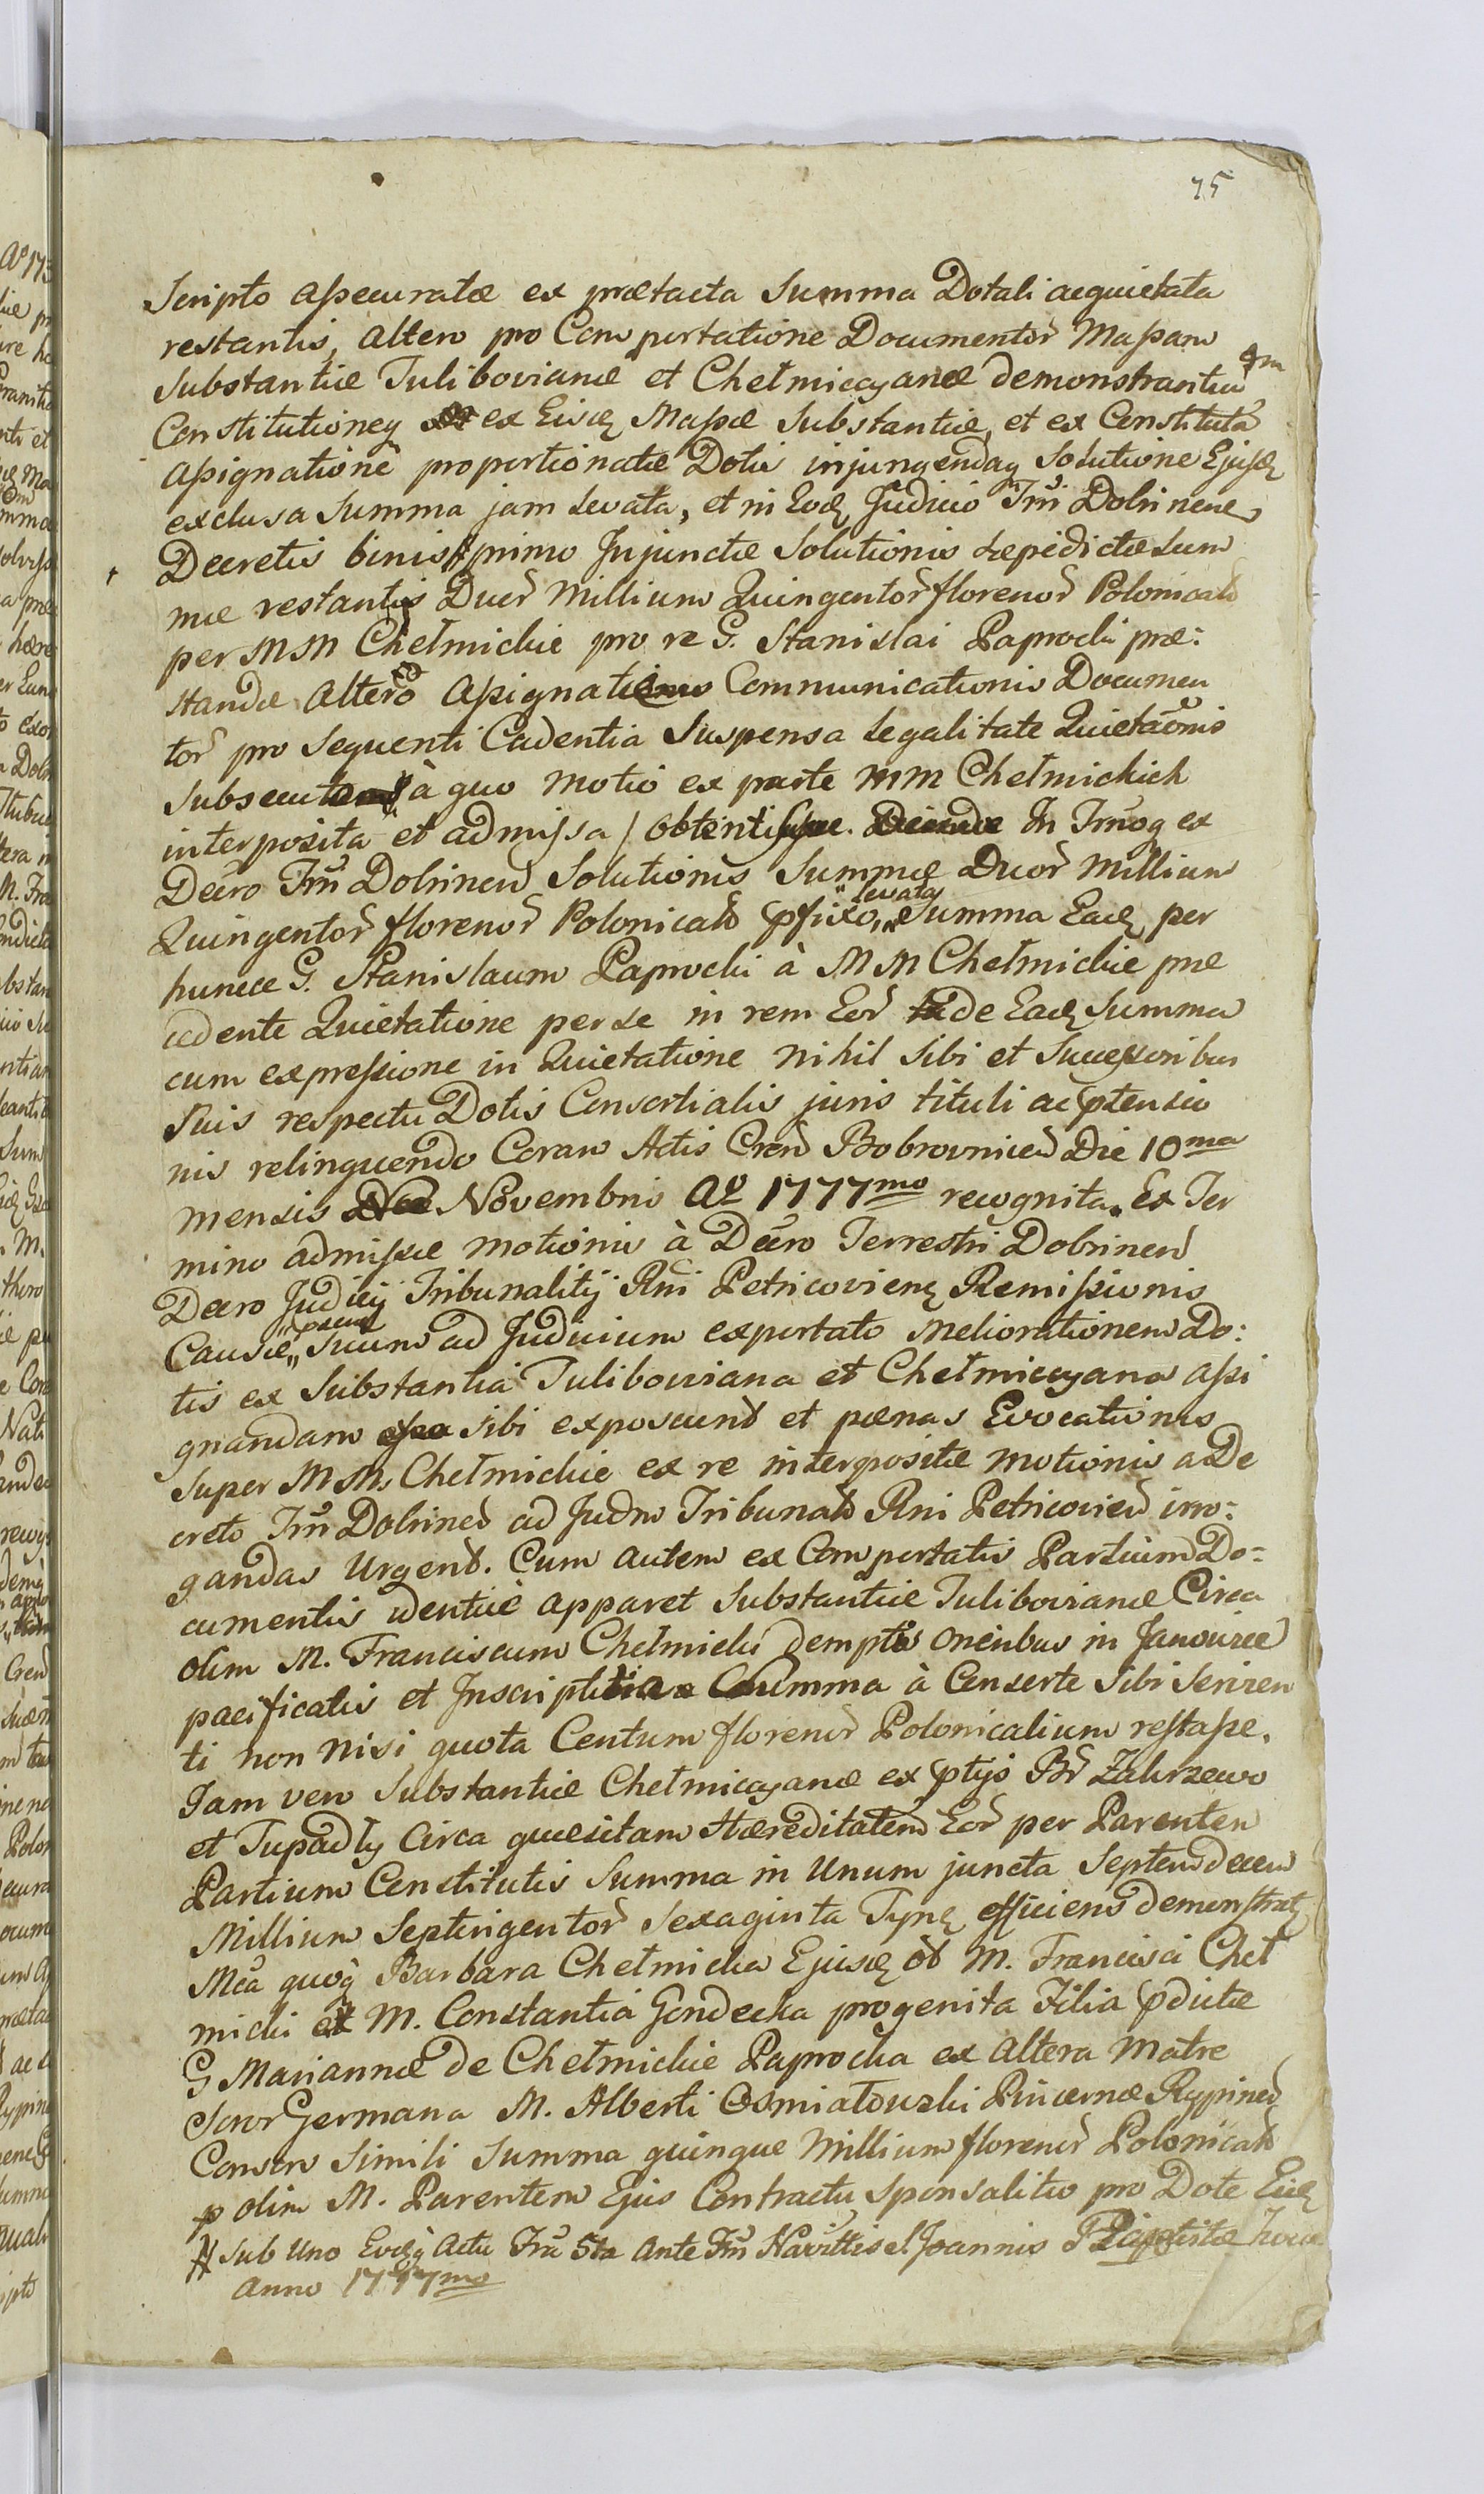 75
Scripto assecuratæ ex prætacta Summa Dotali acquietata
restantis, altero pro Comportatione Documentor Massam
Substantiæ Tulibovianæ et Chełmiccyanæ demonstrantium
Constitutioneq ex Eisdem Massæ Substantiæ, et ex Constituta
assignatione proportionatæ Dotis injungendaq Solutione Ejusd
exclusa Summa jam Levata, et in Eod Judicio Trri Dobrinen
Decretis binis # primo Injunctæ Solutionis Sæpedictæ Sum
mæ restantis Duor Millium Quingentor florenor Polonical
per MM Chełmickie pro re G. Stanislai Paprocki præ:
standæ altero assignationis Communicationis Documen
tor pro Sequenti Cadentia Suspensa Legalitate Quietaonis
Subsecut à quo motio ex parte MM Chełmickich
interposita et admissa / obtentis. In Trmoq ex
Decro Trri Dobrinen Solutionis Summæ Duor Millium
Quingentor florenor Polonical pfixo, "levataq Summa Ead per
hunce G. Stanislaum Paprocki à MM Chełmickie præ
cedente Quietatione per se in rem Eor de Ead Summa
cum expressione in Quietatione nihil Sibi et Successoribus
Suis respectu Dotis Consortialis juris tituli ac ptensio
nis relinquendo Coram Actis Cren Bobrovnicen Die 10ma
mensis Novembris Aº 1777mo recognita. Ex Ter
mino admissæ motionis à Decro Terrestri Dobrinen
Decro Judicij Tribunalitij Rni Petricovien Remissionis
Causæ " Suum ad Judicium exportato meliorationem Do:
tis ex Substantia Tuliboviana et Chełmiccyana assi
gnandam sibi exposcunt et pænas Evocationis
Super MM Chełmickie ex re interpositæ motionis a De
creto Trri Dobrinen ad Judm Tribunal Rni Petricovien irro:
gandas Urgent. Cum autem ex Comportatis Partium Do=
cumentis identiè apparet Substantiæ Tulibovianæ Circa
olim M. Franciscum Chełmicki demptis oneribus in Janourice
pacificatis et Inscripti Summa à Consorte Sibi Serien
ti non nisi quota Centum florenor Polonicalium restasse.
Jam vero Substantiæ Chełmiccyanæ ex ptijs Br Zakrzewo
et Tupadły Circa quæsitam Hæreditatem Eor per Parentem
Partium Constitutis Summa in Unum juncta Septemdecem
Millium Septingentor Sexaginta Tynf efficiens demonstrat
Mca quoq Barbara Chełmicka Ejusd ol M. Francisci Cheł
micki et M. Constantia Gondecka progenita Filia pdictæ
G Mariannæ de Chełmickie Paprocka ex altera Matre
Soror Germana M. Alberti Osmiałowski Pincernæ Rypinen
Consors Simili Summa quinque Millium florenor Polonical
p olim M. Parentem Ejus Contractu Sponsalitio pro Dote Eid
# Sub Uno Eodq Actu Fria 5ta Ante Fm Navittis S. Joannis Baptistæ
Anno 1777mo